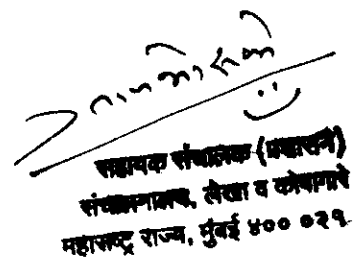 सहायक संचालक (प्रशासन)
संचालनालय, लेखा व कोषागारे
महाराष्ट्र राज्य, मुंबई ४०० ०२१